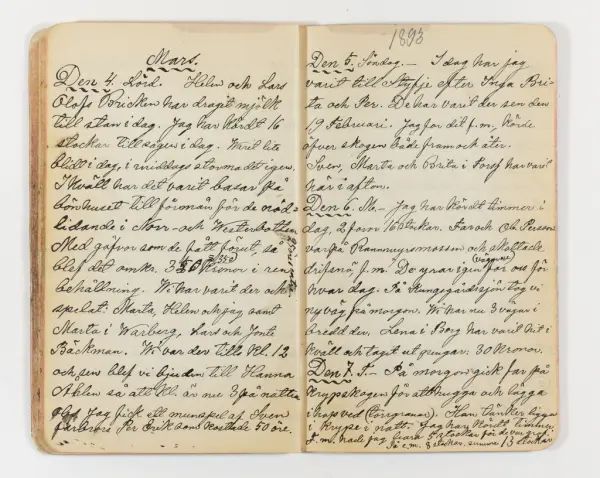 Mars.
Den 4. Lörd. Helen och Lars
Olofs Bricken har dragit mjölk
till stan i dag. Jag har kördt 16
stockar till sågen i dag. Varit lite
blidt i dag, i middags stormadt igen.
I kväll har det varit basar på
bönhuset till förmån för de nöd-
lidande i Norr- och Westerbotten
Med gåfvor som de fått förut, så
blef det omkr. 350 Kronor i ren
behållning. Wi har varit der och
spelat: Marta, Helen och jag samt
Marta i Warberg, Lars och Jonte
Bäckman. Wi var der till Kl. 12
och sen blef vi bjuden till Hanna
Ahlen så att Kl. är nu 3 på natten
Jag fick ett munspel af Sven
farbrors Per Erik som kostade 50 öre.
1893
Den 5. Söndag. — I dag har jag
varit till Styfje efter Inga Bri-
ta och Per. De har varit der sen den
19 Februari. Jag for dit f.m., körde
öfver skogen både fram och åter.
Sven, Marta och Brita i Torp har varit
här i afton.
Den 6. M. — Jag har kördt timmer i
dag, 2 foror 16 stockar. Far och Ol. Persson
var på mossmossen och skottade
drifsnö f.m. De yrar igen för oss för
(vägarne)
hvar dag. På Kungsgårdssjön tog vi
ny väg på morgon. Wi har nu 3 vägar i
bredd der. Lena i Berg har varit hit i
kvätt och tagit ut pengar: 30 Kronor.
Den 7. T. — På morgon gick far på
Krypskogen för att hugga och lägga
ihop ved Han tänker ligga
i Krype i natt. Jag har kördt timmer,
f.m. hade jag bara 5 stockar för de var
På e.m. 8 stockar, summa 13 stockar